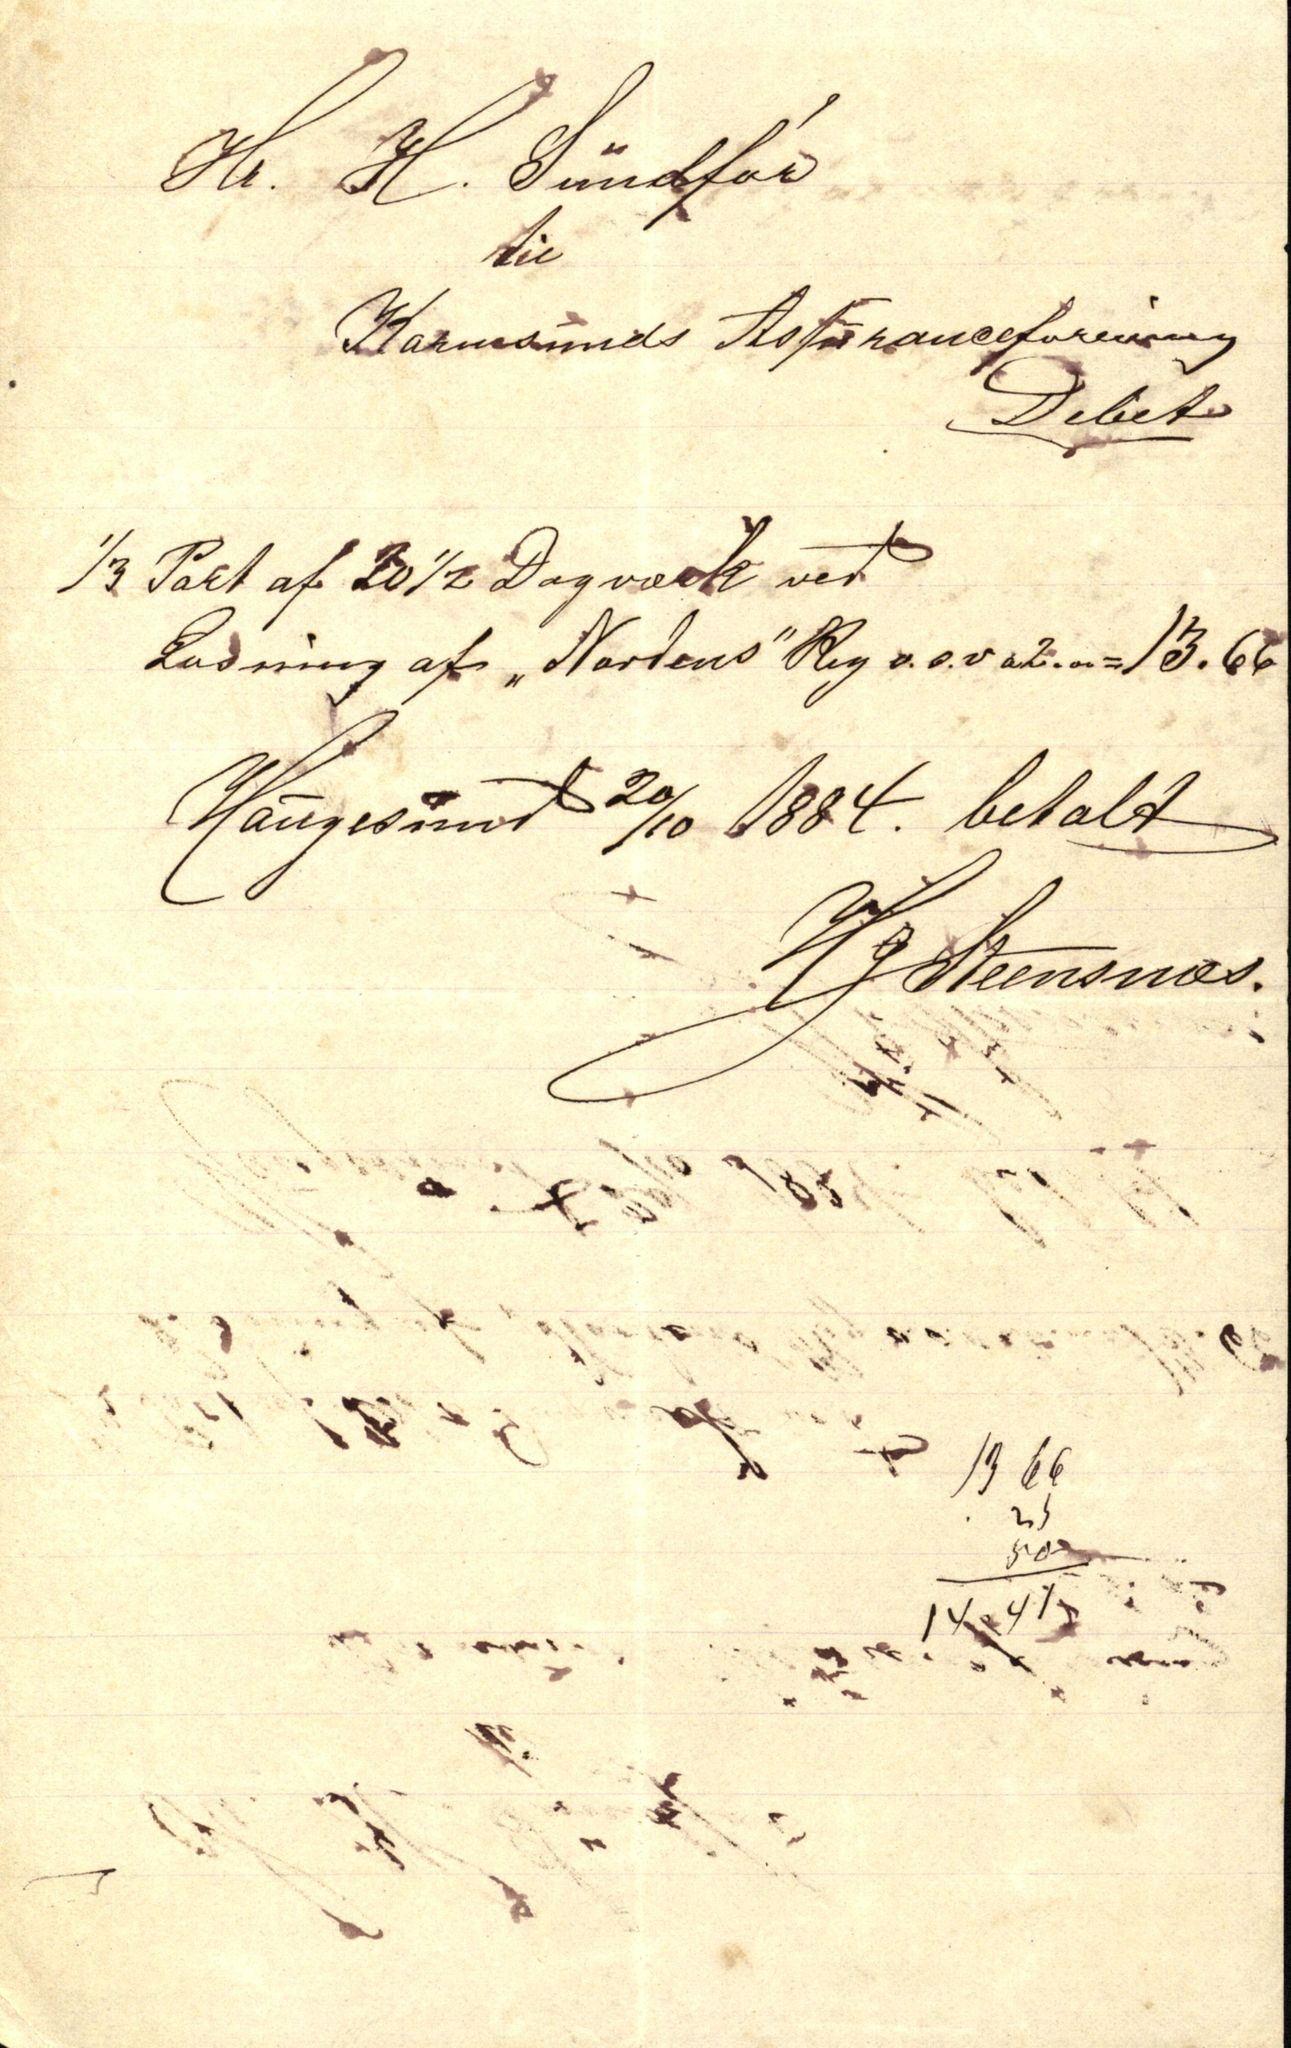 Hr. H. Sündför
til
Karmsünds Assüranceforening
Debet
1/3 Part af 20 1/2 Dagværk ved
Losning af „Nordens" Rig o.s.v a 2.00 = 13.66
Haügesünd 20/10 1884. betalt
HJ Steensnæs.
13 66
25
50
14.41